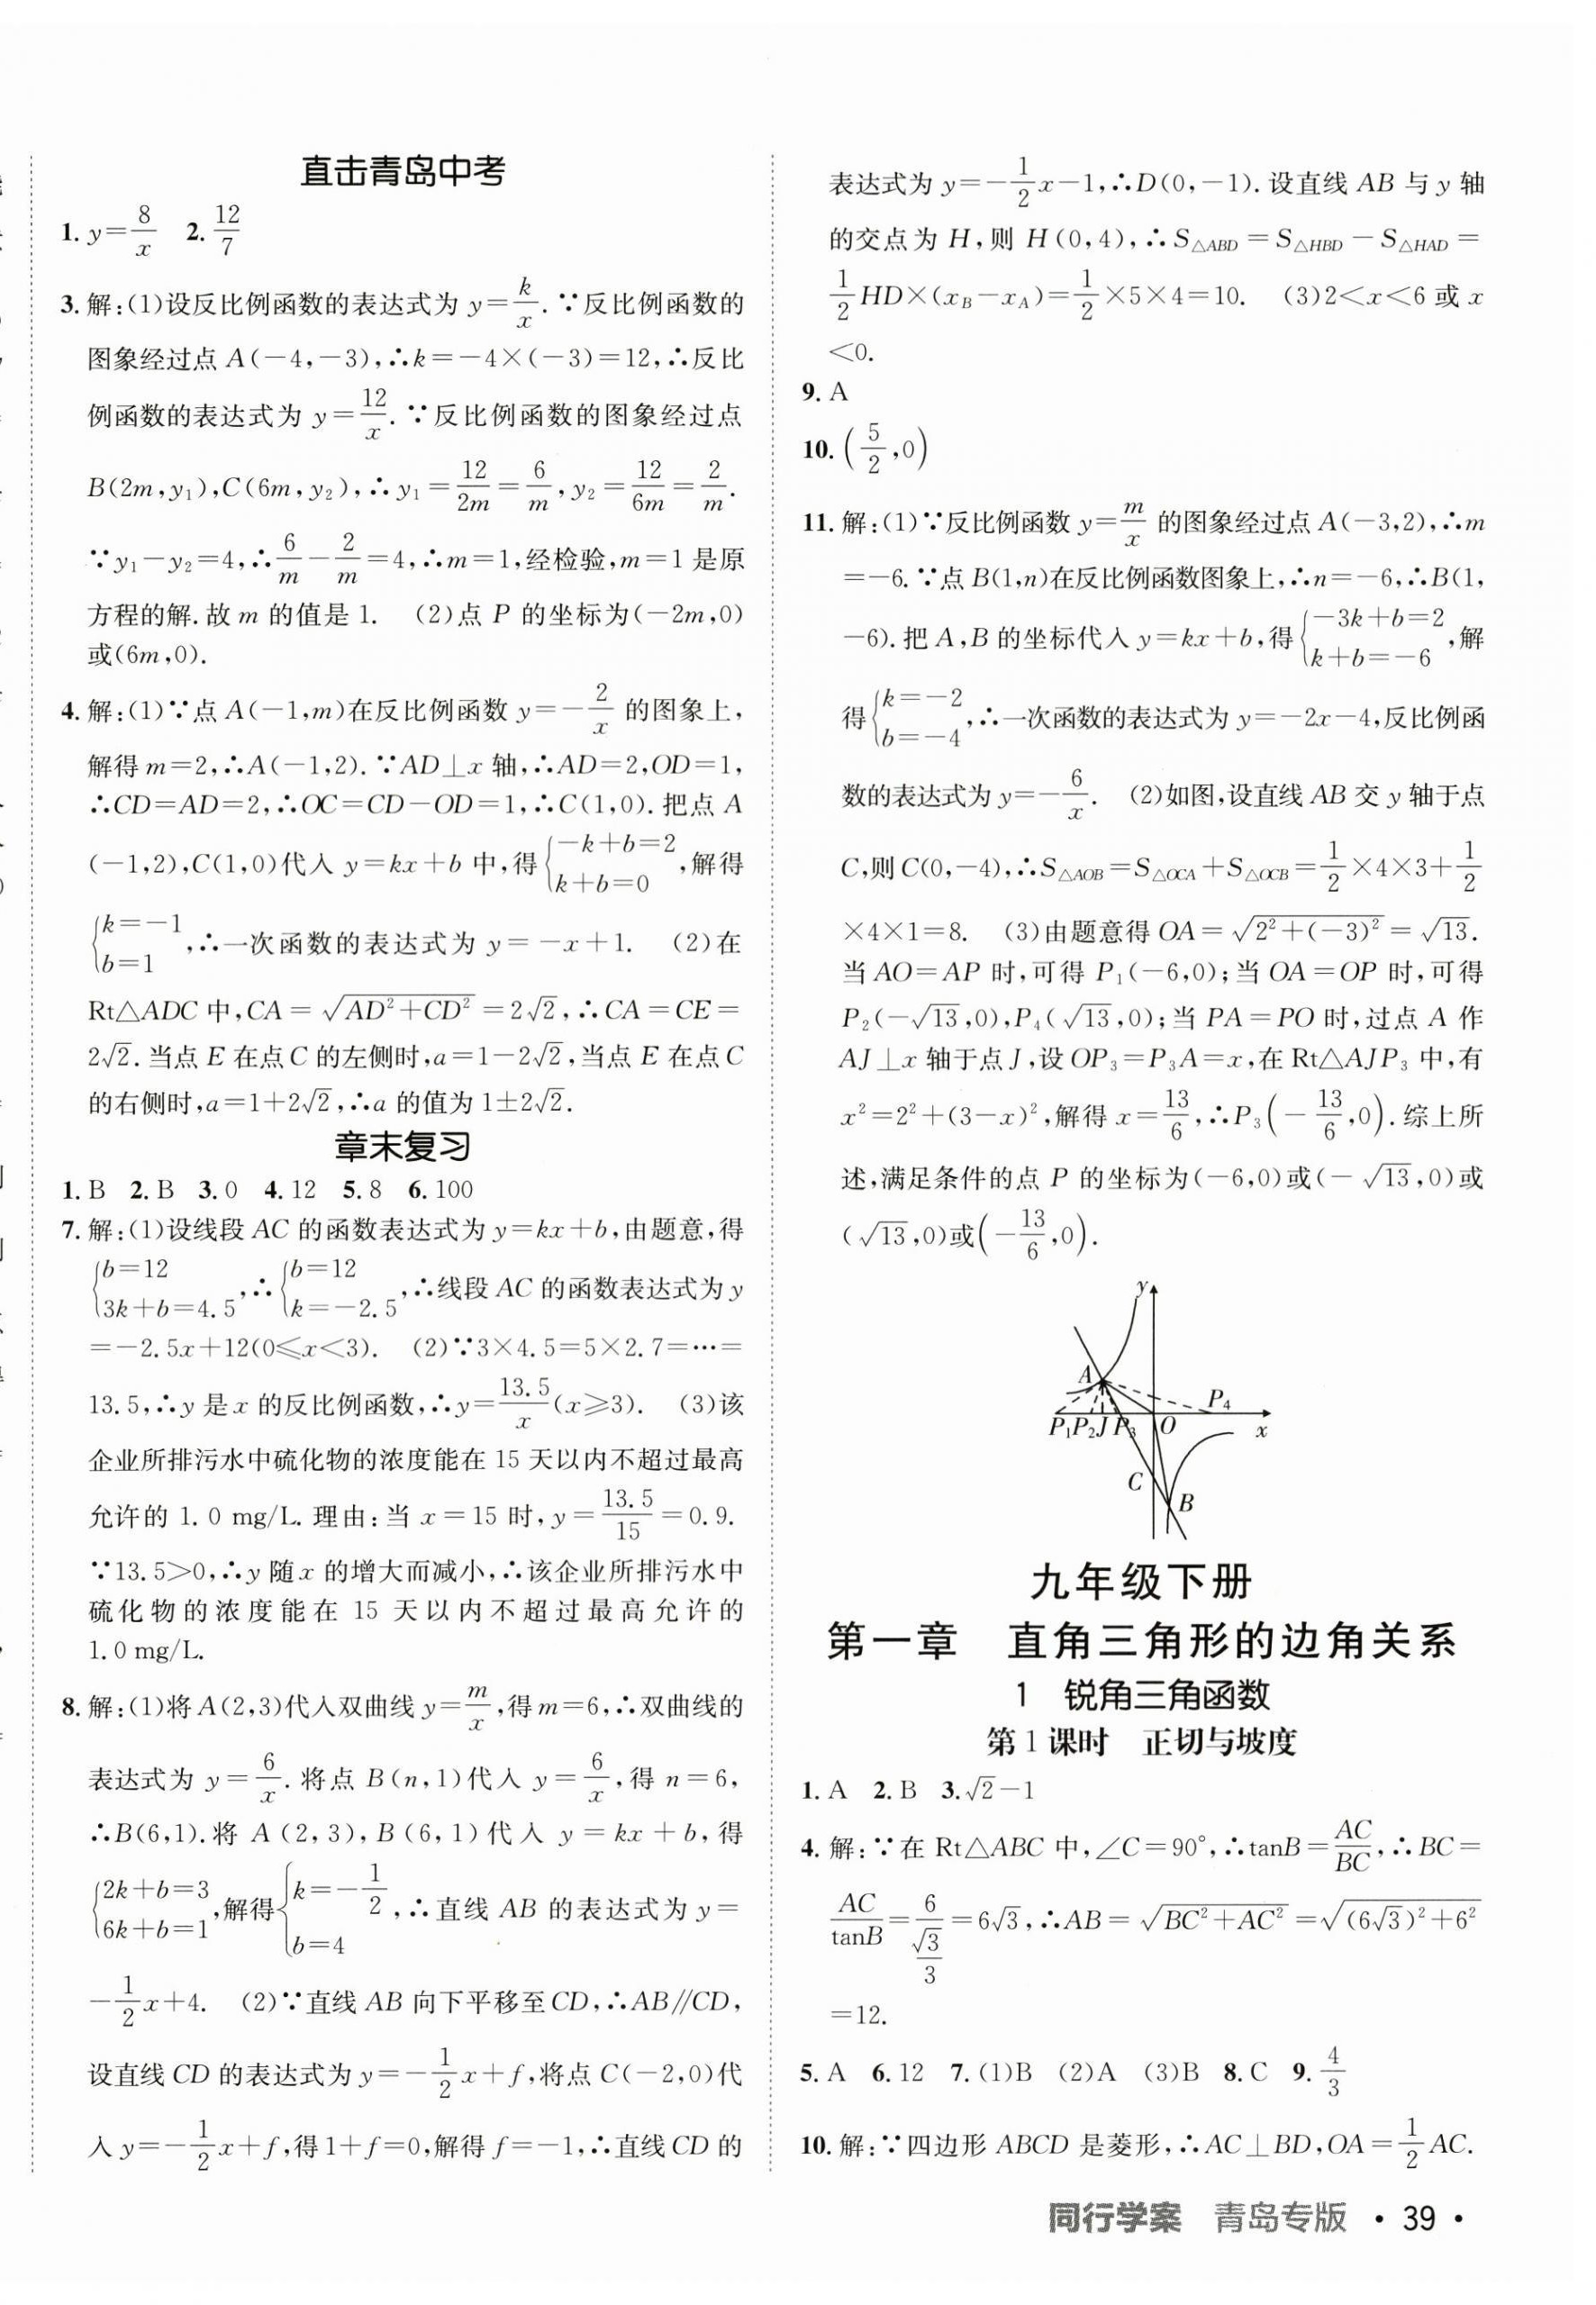 直击青岛中考
1. y=8/x  2. 12/7
3. 解:(1)设反比例函数的表达式为 y=k/x. ∵反比例函数的
图象经过点 A(-4,-3),∴k=-4×(-3)=12,∴反比
例函数的表达式为 y=12/x. ∵反比例函数的图象经过点
B(2m,y₁),C(6m,y₂),∴y₁=12/2m=6/m,y₂=12/6m=2/m.
∵y₁-y₂=4,∴6/m-2/m=4,∴m=1,经检验,m=1 是原
方程的解.故 m 的值是 1.  (2)点 P 的坐标为(-2m,0)
或(6m,0).
4. 解:(1)∵点 A(-1,m)在反比例函数 y=-2/x 的图象上,
解得 m=2,∴A(-1,2). ∵AD⊥x 轴,∴AD=2,OD=1,
∴CD=AD=2,∴OC=CD-OD=1,∴C(1,0). 把点 A
(-1,2),C(1,0)代入 y=kx+b 中,得{-k+b=2 k+b=0,解得
{k=-1 b=1,∴一次函数的表达式为 y=-x+1.  (2)在
Rt△ADC 中,CA=√(AD²+CD²)=2√2,∴CA=CE=
2√2. 当点 E 在点 C 的左侧时,a=1-2√2,当点 E 在点 C
的右侧时,a=1+2√2,∴a 的值为 1±2√2.
章末复习
1. B  2. B  3. 0  4. 12  5. 8  6. 100
7. 解:(1)设线段 AC 的函数表达式为 y=kx+b,由题意,得
{b=12 3k+b=4.5,∴{b=12 k=-2.5,∴线段 AC 的函数表达式为 y
=-2.5x+12(0≤x<3).  (2)∵3×4.5=5×2.7=…=
13.5,∴y 是 x 的反比例函数,∴y=13.5/x(x≥3).  (3)该
企业所排污水中硫化物的浓度能在 15 天以内不超过最高
允许的 1.0 mg/L. 理由:当 x=15 时,y=13.5/15=0.9.
∵13.5>0,∴y 随 x 的增大而减小,∴该企业所排污水中
硫化物的浓度能在 15 天以内不超过最高允许的
1.0 mg/L.
8. 解:(1)将 A(2,3)代入双曲线 y=m/x,得 m=6,∴双曲线的
表达式为 y=6/x. 将点 B(n,1)代入 y=6/x,得 n=6,
∴B(6,1). 将 A(2,3),B(6,1)代入 y=kx+b,得
{2k+b=3 6k+b=1,解得{k=-1/2 b=4,∴直线 AB 的表达式为 y=
-1/2x+4.  (2)∵直线 AB 向下平移至 CD,∴AB∥CD,
设直线 CD 的表达式为 y=-1/2x+f,将点 C(-2,0)代
入 y=-1/2x+f,得 1+f=0,解得 f=-1,∴直线 CD 的
表达式为 y=-1/2x-1,∴D(0,-1). 设直线 AB 与 y 轴
的交点为 H,则 H(0,4),∴S△ABD=S△HBD-S△HAD=
1/2HD×(xB-xA)=1/2×5×4=10.  (3)2<x<6 或 x
<0.
9. A
10. (5/2,0)
11. 解:(1)∵反比例函数 y=m/x 的图象经过点 A(-3,2),∴m
=-6. ∵点 B(1,n)在反比例函数图象上,∴n=-6,∴B(1,
-6). 把 A,B 的坐标代入 y=kx+b,得{-3k+b=2 k+b=-6,解
得{k=-2 b=-4,∴一次函数的表达式为 y=-2x-4,反比例函
数的表达式为 y=-6/x.  (2)如图,设直线 AB 交 y 轴于点
C,则 C(0,-4),∴S△AOB=S△OCA+S△OCB=1/2×4×3+1/2
×4×1=8.  (3)由题意得 OA=√(2²+(-3)²)=√13.
当 AO=AP 时,可得 P₁(-6,0);当 OA=OP 时,可得
P₂(-√13,0),P₄(√13,0);当 PA=PO 时,过点 A 作
AJ⊥x 轴于点 J,设 OP₃=P₃A=x,在 Rt△AJP₃ 中,有
x²=2²+(3-x)²,解得 x=13/6,∴P₃(-13/6,0). 综上所
述,满足条件的点 P 的坐标为(-6,0)或(-√13,0)或
(√13,0)或(-13/6,0).
y
A
P₄
P₁P₂J P₃ O x
C
B
九年级下册
第一章 直角三角形的边角关系
1 锐角三角函数
第 1 课时 正切与坡度
1. A  2. B  3. √2-1
4. 解:∵在 Rt△ABC 中,∠C=90°,∴tanB=AC/BC,∴BC=
AC/tanB=6/(√3/3)=6√3,∴AB=√(BC²+AC²)=√((6√3)²+6²)
=12.
5. A  6. 12  7. (1)B  (2)A  (3)B  8. C  9. 4/3
10. 解:∵四边形 ABCD 是菱形,∴AC⊥BD,OA=1/2AC.
同行学案 青岛专版 · 39 ·